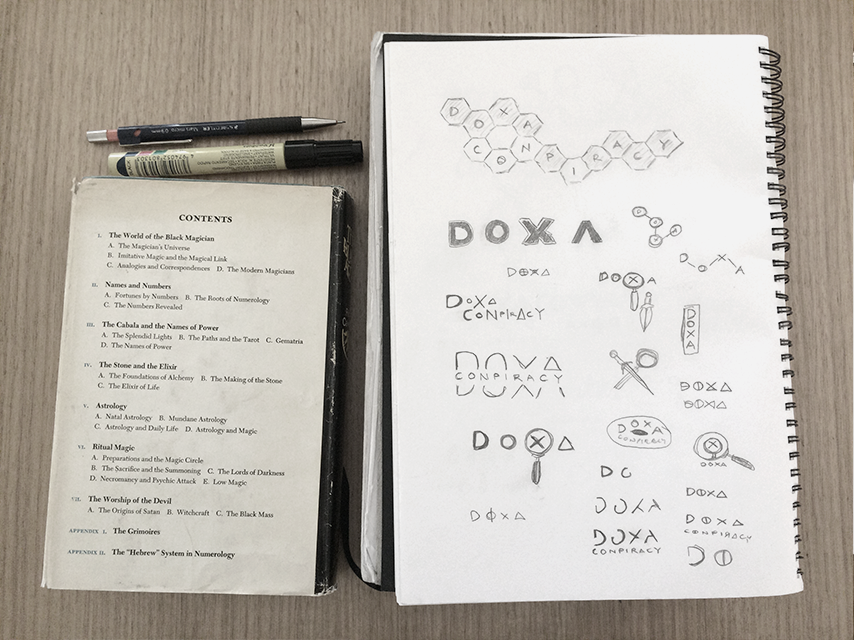 STAEDTLER Mars micro 0.9 mm
CONTENTS
I. The World of the Black Magician
A. The Magician's Universe
B. Imitative Magic and the Magical Link
C. Analogies and Correspondences D. The Modern Magicians
II. Names and Numbers
A. Fortunes by Numbers B. The Roots of Numerology
C. The Numbers Revealed
III. The Cabala and the Names of Power
A. The Splendid Lights B. The Paths and the Tarot C. Gematria
D. The Names of Power
IV. The Stone and the Elixir
A. The Foundations of Alchemy B. The Making of the Stone
C. The Elixir of Life
V. Astrology
A. Natal Astrology B. Mundane Astrology
C. Astrology and Daily Life D. Astrology and Magic
VI. Ritual Magic
A. Preparations and the Magic Circle
B. The Sacrifice and the Summoning C. The Lords of Darkness
D. Necromancy and Psychic Attack E. Low Magic
VII. The Worship of the Devil
A. The Origins of Satan B. Witchcraft C. The Black Mass
APPENDIX I. The Grimoires
APPENDIX II. The "Hebrew" System in Numerology
DOXA
CONPIRACY
DOXA
DOXA
DOXA
CONPIRACY
DOXA
CONPIRACY
DOXA
DOXA
DOXA
DOXA
DOXA
DOXA
DOXA
DOXA
DOXA
DOXA
CONPIRACY
DOXA
DO
DOXA
DOXA
DOXA
CONPIRACY
DOXA
CONPIRACY
DO